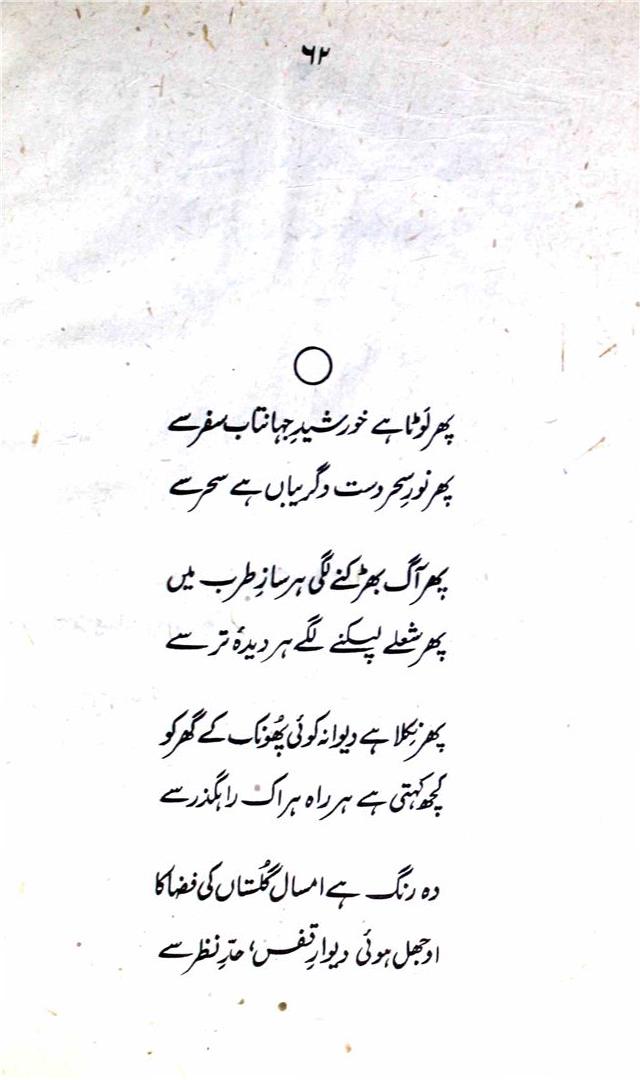 ۶۲
پھر لَوٹا ہے خورشیدِ جہانتاب سفر سے
پھر نورِ سحر دست و گریباں ہے سحر سے
پھر آگ بھڑکنے لگی ہر سازِ طرب میں
پھر شعلے لپکنے لگے ہر دیدۂ تر سے
پھر نِکلا ہے دیوانہ کوئی پھُونک کے گھر کو
کچھ کہتی ہے ہر راہ ہر اک راہگذر سے
وہ رنگ ہے امسال گُلستاں کی فضا کا
اوجھل ہوئی دیوارِ قفس، حدِّ نظر سے